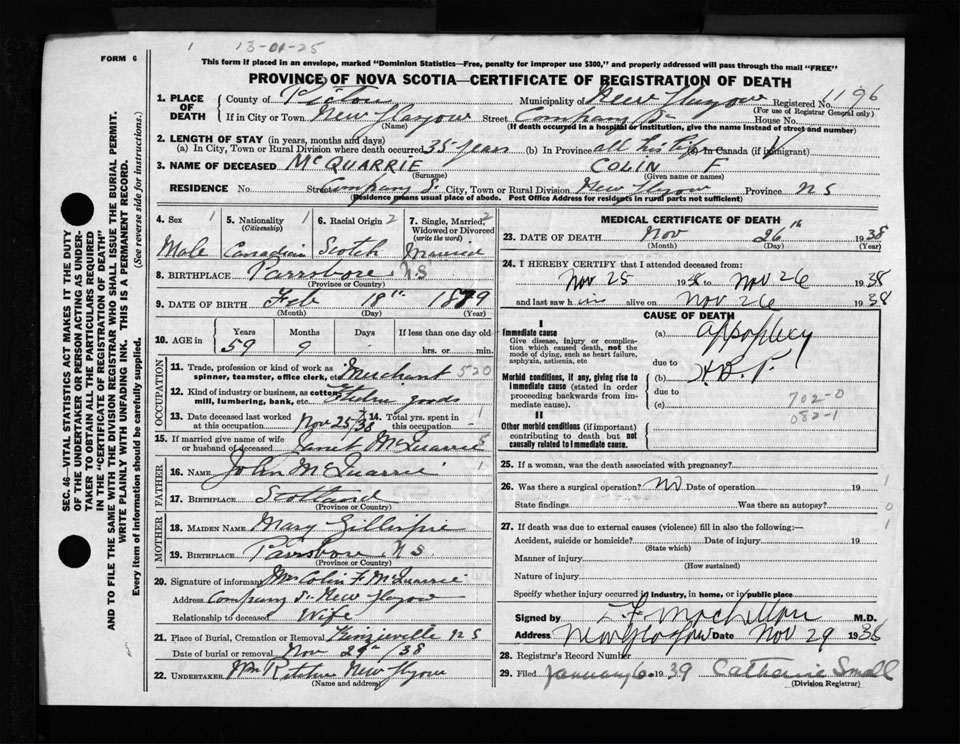 1 13-01-25
FORM 6
This form if placed in an envelope, marked "Dominion Statistics—Free, penalty for improper use $300," and properly addressed will pass through the mail "FREE"
PROVINCE OF NOVA SCOTIA—CERTIFICATE OF REGISTRATION OF DEATH
SEC. 46—VITAL STATISTICS ACT MAKES IT THE DUTY
OF THE UNDERTAKER OR PERSON ACTING AS UNDER-
TAKER TO OBTAIN ALL THE PARTICULARS REQUIRED
IN THE "CERTIFICATE OF REGISTRATION OF DEATH"
AND TO FILE THE SAME WITH THE DIVISION REGISTRAR WHO SHALL ISSUE THE BURIAL PERMIT.
WRITE PLAINLY WITH UNFADING INK. THIS IS A PERMANENT RECORD.
Every item of information should be carefully supplied. (See reverse side for instructions.)
1. PLACE OF DEATH County of Pictou Municipality of New Glasgow Registered No. 1196
(For use of Registrar General only)
If in City or Town New Glasgow Street Company St House No.
(Name) (If death occurred in a hospital or institution, give the name instead of street and number)
2. LENGTH OF STAY (in years, months and days)
(a) In City, Town or Rural Division where death occurred 35 years (b) In Province all his life (c) In Canada (if immigrant)
3. NAME OF DECEASED McQUARRIE COLIN F
(Surname) (Given name or names)
RESIDENCE No. Street Company St. City, Town or Rural Division New Glasgow Province N S
(Residence means usual place of abode. Post Office Address for residents in rural parts not sufficient)
4. Sex 1 Male
5. Nationality 1 (Citizenship) Canadian
6. Racial Origin 2 Scotch
7. Single, Married, 2 Widowed or Divorced (write the word) Married
8. BIRTHPLACE Parrsboro N S
(Province or Country)
9. DATE OF BIRTH Feb 18th 1879
(Month) (Day) (Year)
10. AGE in Years 59 Months 9 Days - If less than one day old hrs. or min.
OCCUPATION
11. Trade, profession or kind of work as spinner, teamster, office clerk, etc. Merchant 520
12. Kind of industry or business, as cotton mill, lumbering, bank, etc. goods
13. Date deceased last worked at this occupation Nov 25/38 14. Total yrs. spent in this occupation -
15. If married give name of wife or husband of deceased Janet McQuarrie
FATHER
16. NAME John McQuarrie
17. BIRTHPLACE Scotland
(Province or Country)
MOTHER
18. MAIDEN NAME Mary Gillispie
19. BIRTHPLACE Parrsboro N S
(Province or Country)
20. Signature of informant Mrs Colin F McQuarrie
Address Company St. New Glasgow
Relationship to deceased Wife
21. Place of Burial, Cremation or Removal N S
Date of burial or removal Nov 29th/38
22. UNDERTAKER Wm New Glasgow
(Name and address)
MEDICAL CERTIFICATE OF DEATH
23. DATE OF DEATH Nov 26th 1938
(Month) (Day) (Year)
24. I HEREBY CERTIFY that I attended deceased from:
Nov 25 1938 to Nov 26 1938
and last saw him alive on Nov 26 1938
CAUSE OF DEATH
I
Immediate cause
Give disease, injury or complication which caused death, not the mode of dying, such as heart failure, asphyxia, asthenia, etc
(a) appoplexy
due to
Morbid conditions, if any, giving rise to immediate cause (stated in order proceeding backwards from immediate cause).
(b) H.B.P.
due to
(c)
702-0
082-1
II
Other morbid conditions (if important) contributing to death but not causally related to immediate cause.
25. If a woman, was the death associated with pregnancy?
26. Was there a surgical operation? No Date of operation 19 1
State findings Was there an autopsy? 0
27. If death was due to external causes (violence) fill in also the following:— 1
Accident, suicide or homicide? Date of injury 19
(State which)
Manner of injury
(How sustained)
Nature of injury
Specify whether injury occurred in industry, in home, or in public place
Signed by M.D.
Address New Glasgow Date Nov 29 1938
28. Registrar's Record Number
29. Filed January 6. 1939 Catharine Small
(Division Registrar)